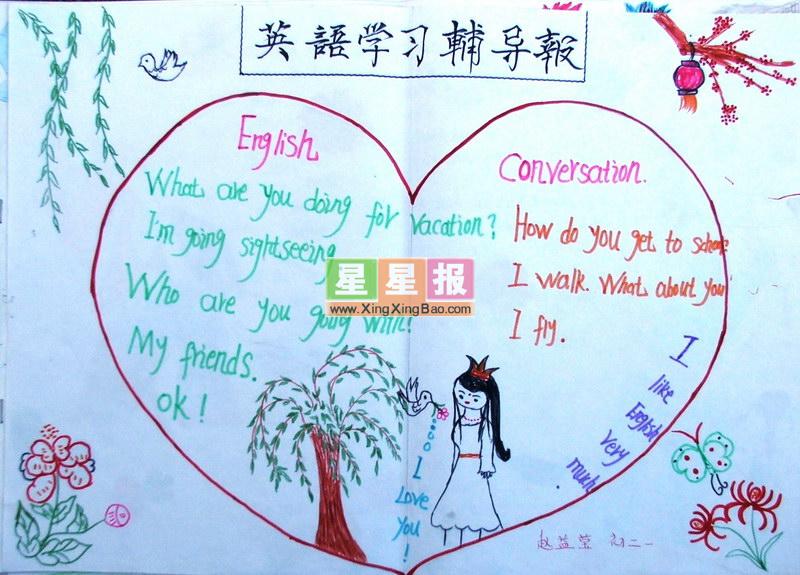 英語学习輔导報
English
What are you doing for vacation?
I'm going sightseeing
Who are you going with?
My friends.
ok!
Conversation.
How do you get to school?
I walk. What about you
I fly.
I like English very much.
I Love You!
星星报
www.XingXingBao.com
赵益莹 初二一